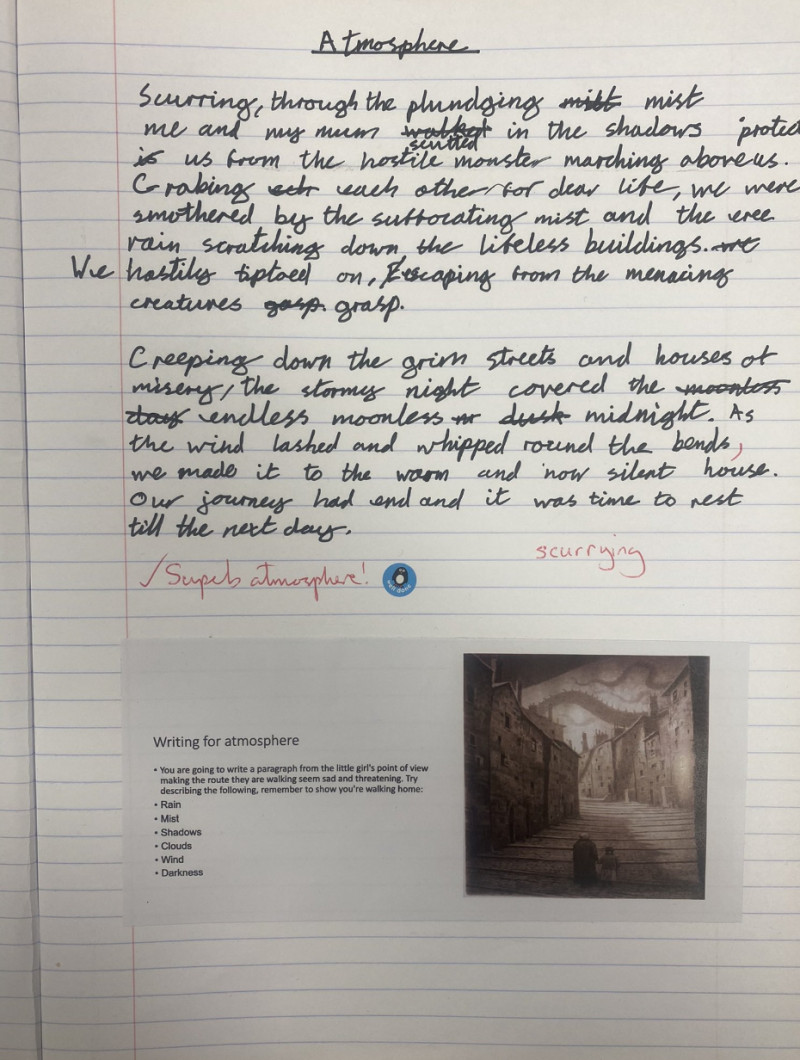 Atmosphere
Scurring, through the plundging mist mist
me and my mum walked scuttled in the shadows protect
is us from the hostile monster marching above us.
Grabing each other for dear life, we were
smothered by the suffocating mist and the eree
rain scratching down the lifeless buildings. we
We hastily tiptoed on, Escaping from the menacing
creatures gasp. grasp.
Creeping down the grim streets and houses of
misery, the stormy night covered the moonless
day endless moonless or dusk midnight. As
the wind lashed and whipped round the bends,
we made it to the warm and now silent house.
Our journey had end and it was time to rest
till the next day.
scurrying
✓ Superb atmosphere!
well done
Writing for atmosphere
• You are going to write a paragraph from the little girl's point of view
making the route they are walking seem sad and threatening. Try
describing the following, remember to show you're walking home:
• Rain
• Mist
• Shadows
• Clouds
• Wind
• Darkness